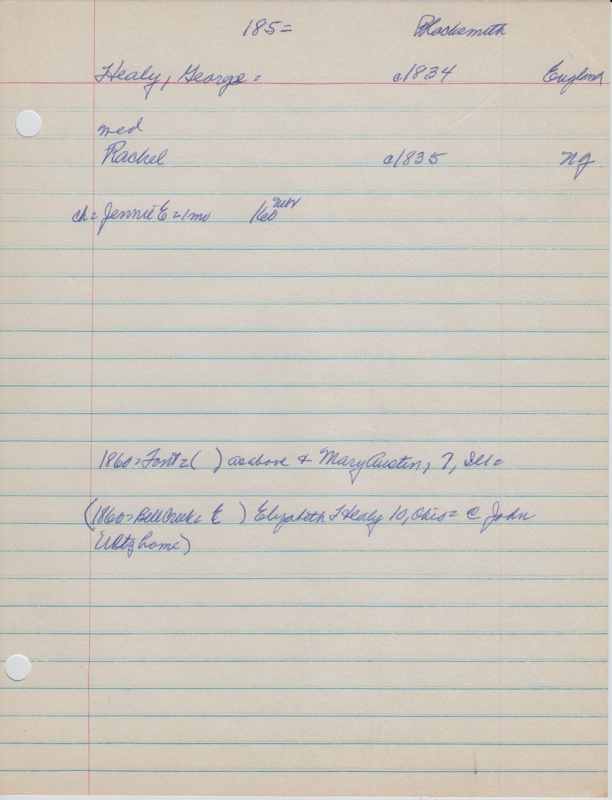 185= Blacksmith
Healy, George = c1834 England
med
Rachel c1835 NY
ch = Jennie E = 1 mo 160
1860 = Font = ( ) as above & Mary Austin, 7, Ill =
(1860 = Bell Creek = E ) Elizabeth J Healy 10, Ohio = @ John
home)